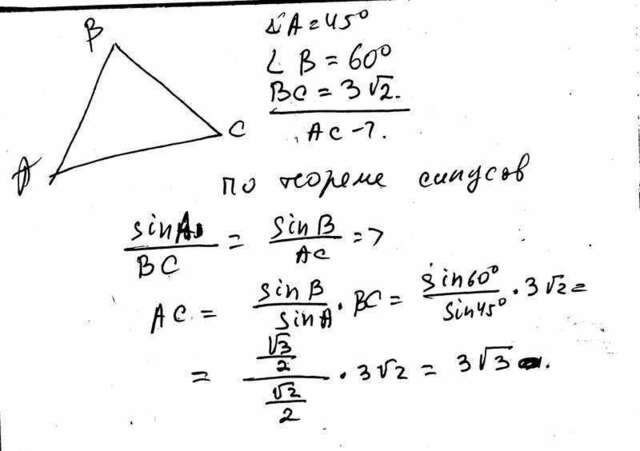 B
A
C
∠A = 45°
∠B = 60°
BC = 3√2.
AC - ?.
по теореме синусов
sinA/BC = sinB/AC =>
AC = sinB/sinA · BC = sin60°/sin45° · 3√2 =
= (√3/2)/(√2/2) · 3√2 = 3√3 .